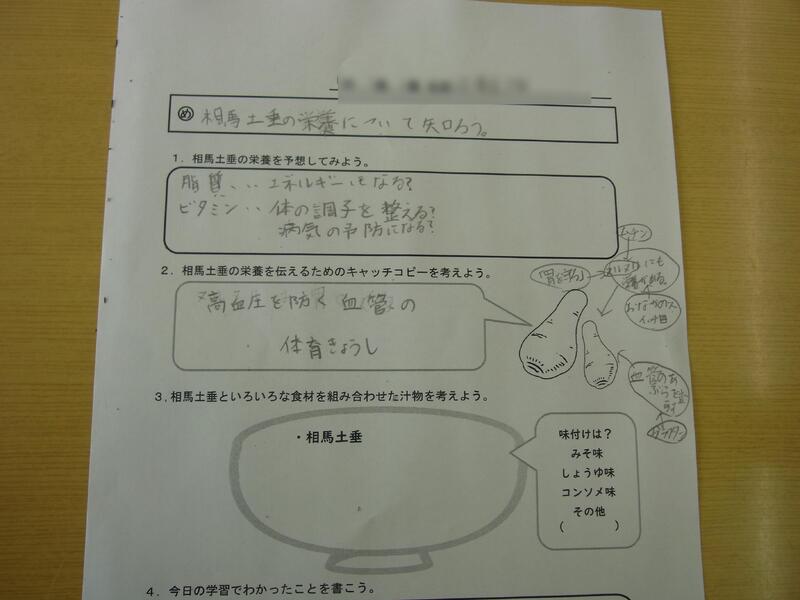 め 相馬土垂の栄養について知ろう。
1．相馬土垂の栄養を予想してみよう。
脂質‥エネルギーになる?
ビタミン‥体の調子を整える?
病気の予防になる?
2．相馬土垂の栄養を伝えるためのキャッチコピーを考えよう。
高血圧を防ぐ血管の
体育きょうし
ムチン
3．相馬土垂といろいろな食材を組み合わせた汁物を考えよう。
・相馬土垂
味付けは？
みそ味
しょうゆ味
コンソメ味
その他
（　　　）
4．今日の学習でわかったことを書こう。